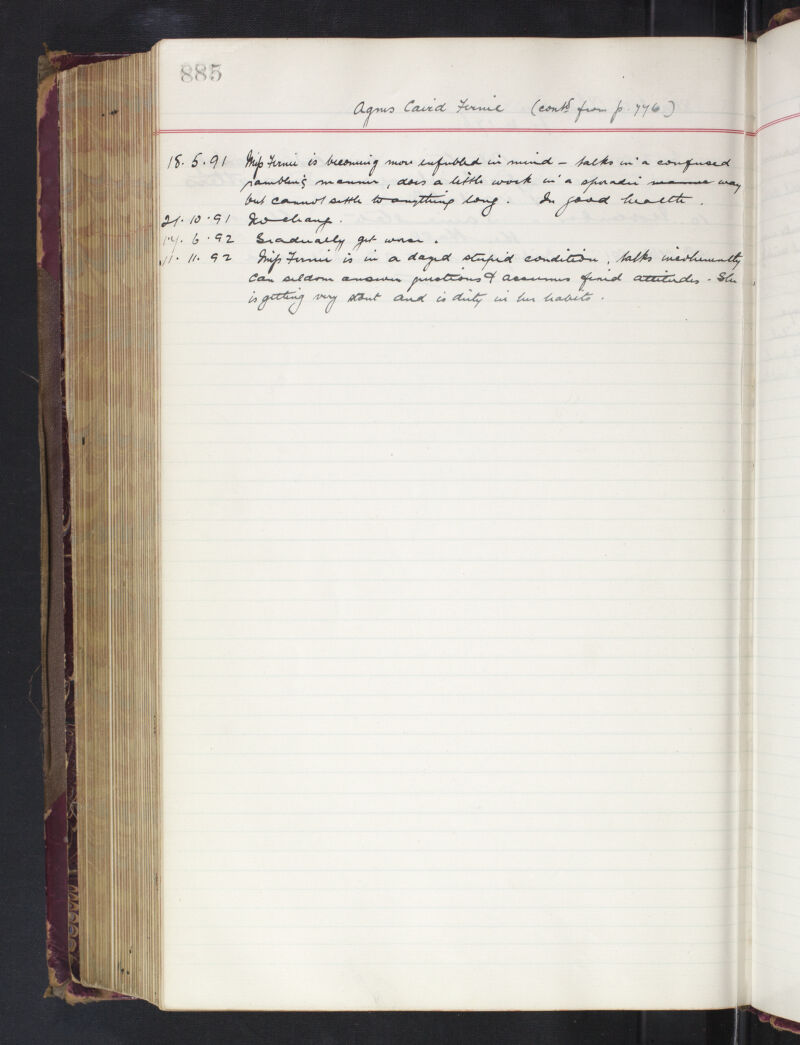 885
Agnes Caird Fernie (contd from p. 776)
18.5.91 Miss Fernie is becoming more enfeebled in mind – talks in a confused
rambling manner, does a little work in a sporadic manner way
but cannot settle to anything long. In good health.
21.10.91 No change.
14.6.92 Gradually get worse.
11.11.92 Miss Fernie is in a dazed stupid condition, talks incoherently
Can seldom answer questions & assumes fixed attitudes. She
is getting very stout and is dirty in her habits.